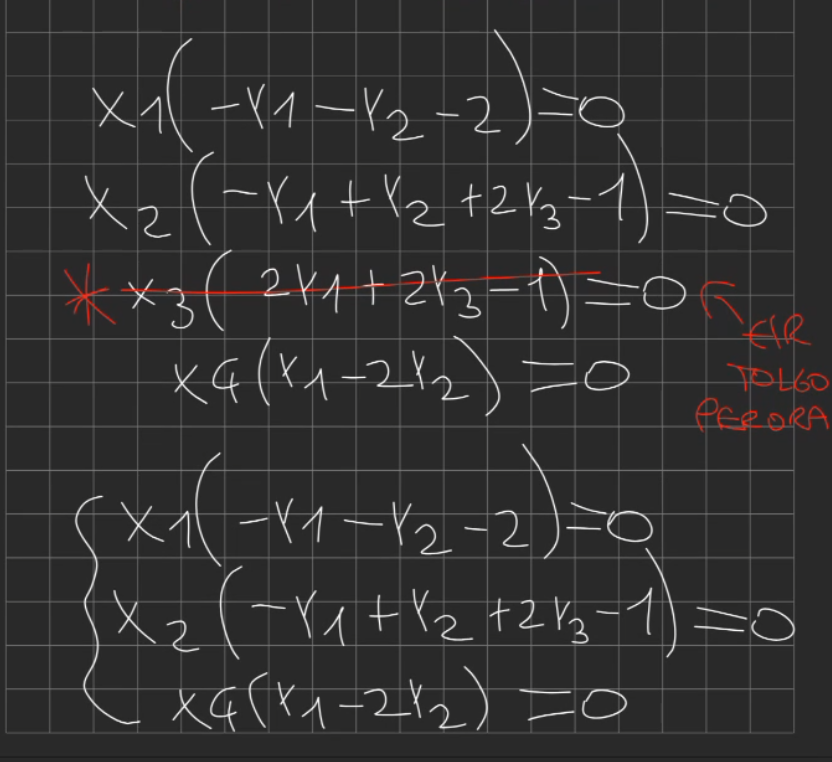 x1(-Y1-Y2-2)=0
x2(-Y1+Y2+2Y3-1)=0
* x3(2Y1+2Y3-1)=0
TOLGO
PER ORA
x4(Y1-2Y2)=0
x1(-Y1-Y2-2)=0
x2(-Y1+Y2+2Y3-1)=0
x4(Y1-2Y2)=0